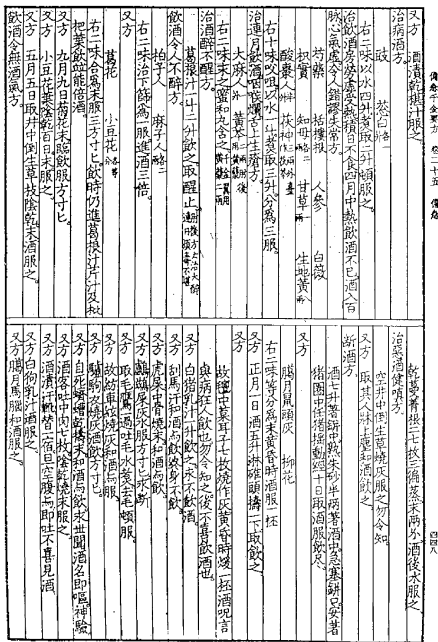 備急千金要方 卷二十五 備急
又方 酒漬乾椹汁服之
治病酒方
豉 葱白
右二味以水四升煮取二升頓服之
治飲酒房勞虛受熱積日不食四月中熱飲酒不已酒入百
脉心氣虛令人錯謬失常方
芍藥 栝樓根 人參 白薇
枳實 知母 甘草 生地黃
酸棗人 茯神
右十味㕮咀以水一斗煮取三升分爲三服
治連月飲酒咽喉爛舌上生瘡方
大麻人 黃芩
右二味末之蜜和丸含之
治酒醉不醒方
葛根汁一斗二升飲之取醒止
飲酒令人不醉方
柏子人 麻子人
右二味治下篩爲一服進酒三倍
又方
葛花 小豆花
右二味合爲末服三方寸匕飲時仍進葛根汁芹汁及枇
杷葉飲並能倍酒
又方 九月九日菊花末臨飲服方寸匕
又方 小豆花葉陰乾百日末服之
又方 五月五日取井中倒生草枝陰乾末酒服之
飲酒令無酒氣方
乾蔓菁根三七枚三遍蒸末兩錢酒後水服之
治惡酒健嗔方
空井中倒生草燒灰服之勿令知
又方 取其人牀上塵和酒飲之
斷酒方
酒七升著缾中熟朱砂半兩著酒中急塞缾口安著
猪圈中任猪搖動經十日取酒服飲盡
又方
臘月鼠頭灰 柳花
右二味等分爲末黃昏時酒服一杯
又方 正月一日酒五升淋碓頭擣一下取飲之
又方
故氈中莫耳子七枚燒作灰黃昏時煖一杯酒咒言
與病狂人飲也勿令知之後不喜飲酒也
又方 白猪乳汁一升飲之永不飲酒
又方 刮馬汗和酒與飲終身不飲
又方 虎屎中骨燒末和酒與飲
又方 鸕鷀屎灰水服方寸匕永斷
又方 取毛鷹一過吐毛水煑去毛頓服
又方 故紡車弦燒灰和酒與服
又方 驢駒衣燒灰酒服方寸匕
又方 自死蠐螬乾擣末和酒與飲永世聞酒名即嘔神驗
又方 酒客吐中肉七枚陰乾燒末服之
又方 酒漬汗靴替一宿旦空腹與即吐不喜見酒
又方 白狗乳汁酒服之
又方 臘月馬腦和酒服之
四四八